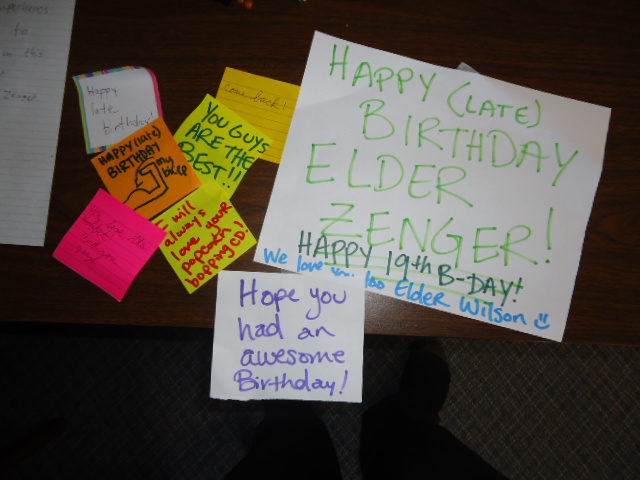 to
in this
Zenger
Happy
late
birthday!
Come back!
YOU GUYS
ARE THE
BEST!!
HAPPY (late)
BIRTHDAY
my
I will
always
love your
popcorn
bopping CD!
HAPPY (LATE)
BIRTHDAY
ELDER
ZENGER!
HAPPY 19th B-DAY!
We love you too Elder Wilson
Hope you
had an
awesome
Birthday!